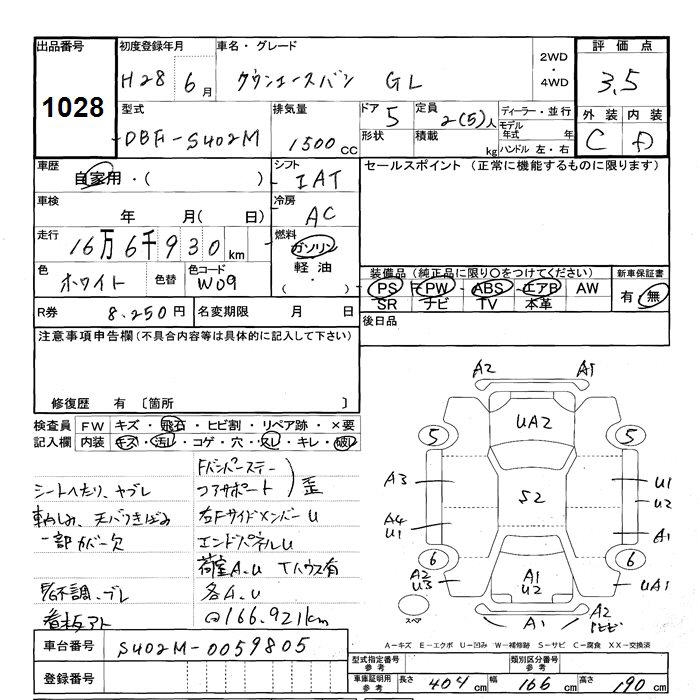 出品番号 初度登録年月 車名・グレード 2WD・4WD 評価点
1028 H28 6月 タウンエースバン GL 3.5
型式 排気量 ドア 5 定員 2(5)人 ディーラー・並行 外装 内装
DBF-S402M 1500cc 形状 積載 kg モデル年式 年 C D
ハンドル 左・右
車歴 自家用・( ) シフト IAT セールスポイント (正常に機能するものに限ります)
車検 年 月( 日) 冷房 AC
走行 16万6千930km 燃料 ガソリン 軽油 ・( )
色 ホワイト 色替 色コード W09
装備品(純正品に限り○をつけてください) 新車保証書
PS PW ABS エアB AW 有・無
SR ナビ TV 本革
R券 8,250円 名変期限 月 日 後日品
注意事項申告欄(不具合内容等は具体的に記入して下さい)
修復歴 有 〔箇所 〕
検査員 FW キズ・飛石・ヒビ割・リペア跡・×要
記入欄 内装 キズ・汚レ・コゲ・穴・スレ・キレ・破レ
Fバンパーステー
コアサポート ) 歪
シートへたり、ヤブレ
右FサイドメンバーU
天バリきばみ
一部カバー欠 エンドパネルU
荷室A.U Tハウス有
不調、ブレ 各A.U
看板アト @166.921km
A2 A1
UA2
5 5
A3 U1
S2 U2
A4 U1 A1
6 6
A2 U3 A1 U2 UA1
スペア A1 A2
車台番号 S402M-0059805
A−キズ E−エクボ U−凹み W−補修跡 S−サビ C−腐食 XX−交換済
登録番号
型式指定番号 参考 類別区分番号 参考
車庫証明用 参考 長さ 404cm 幅 166cm 高さ 190cm